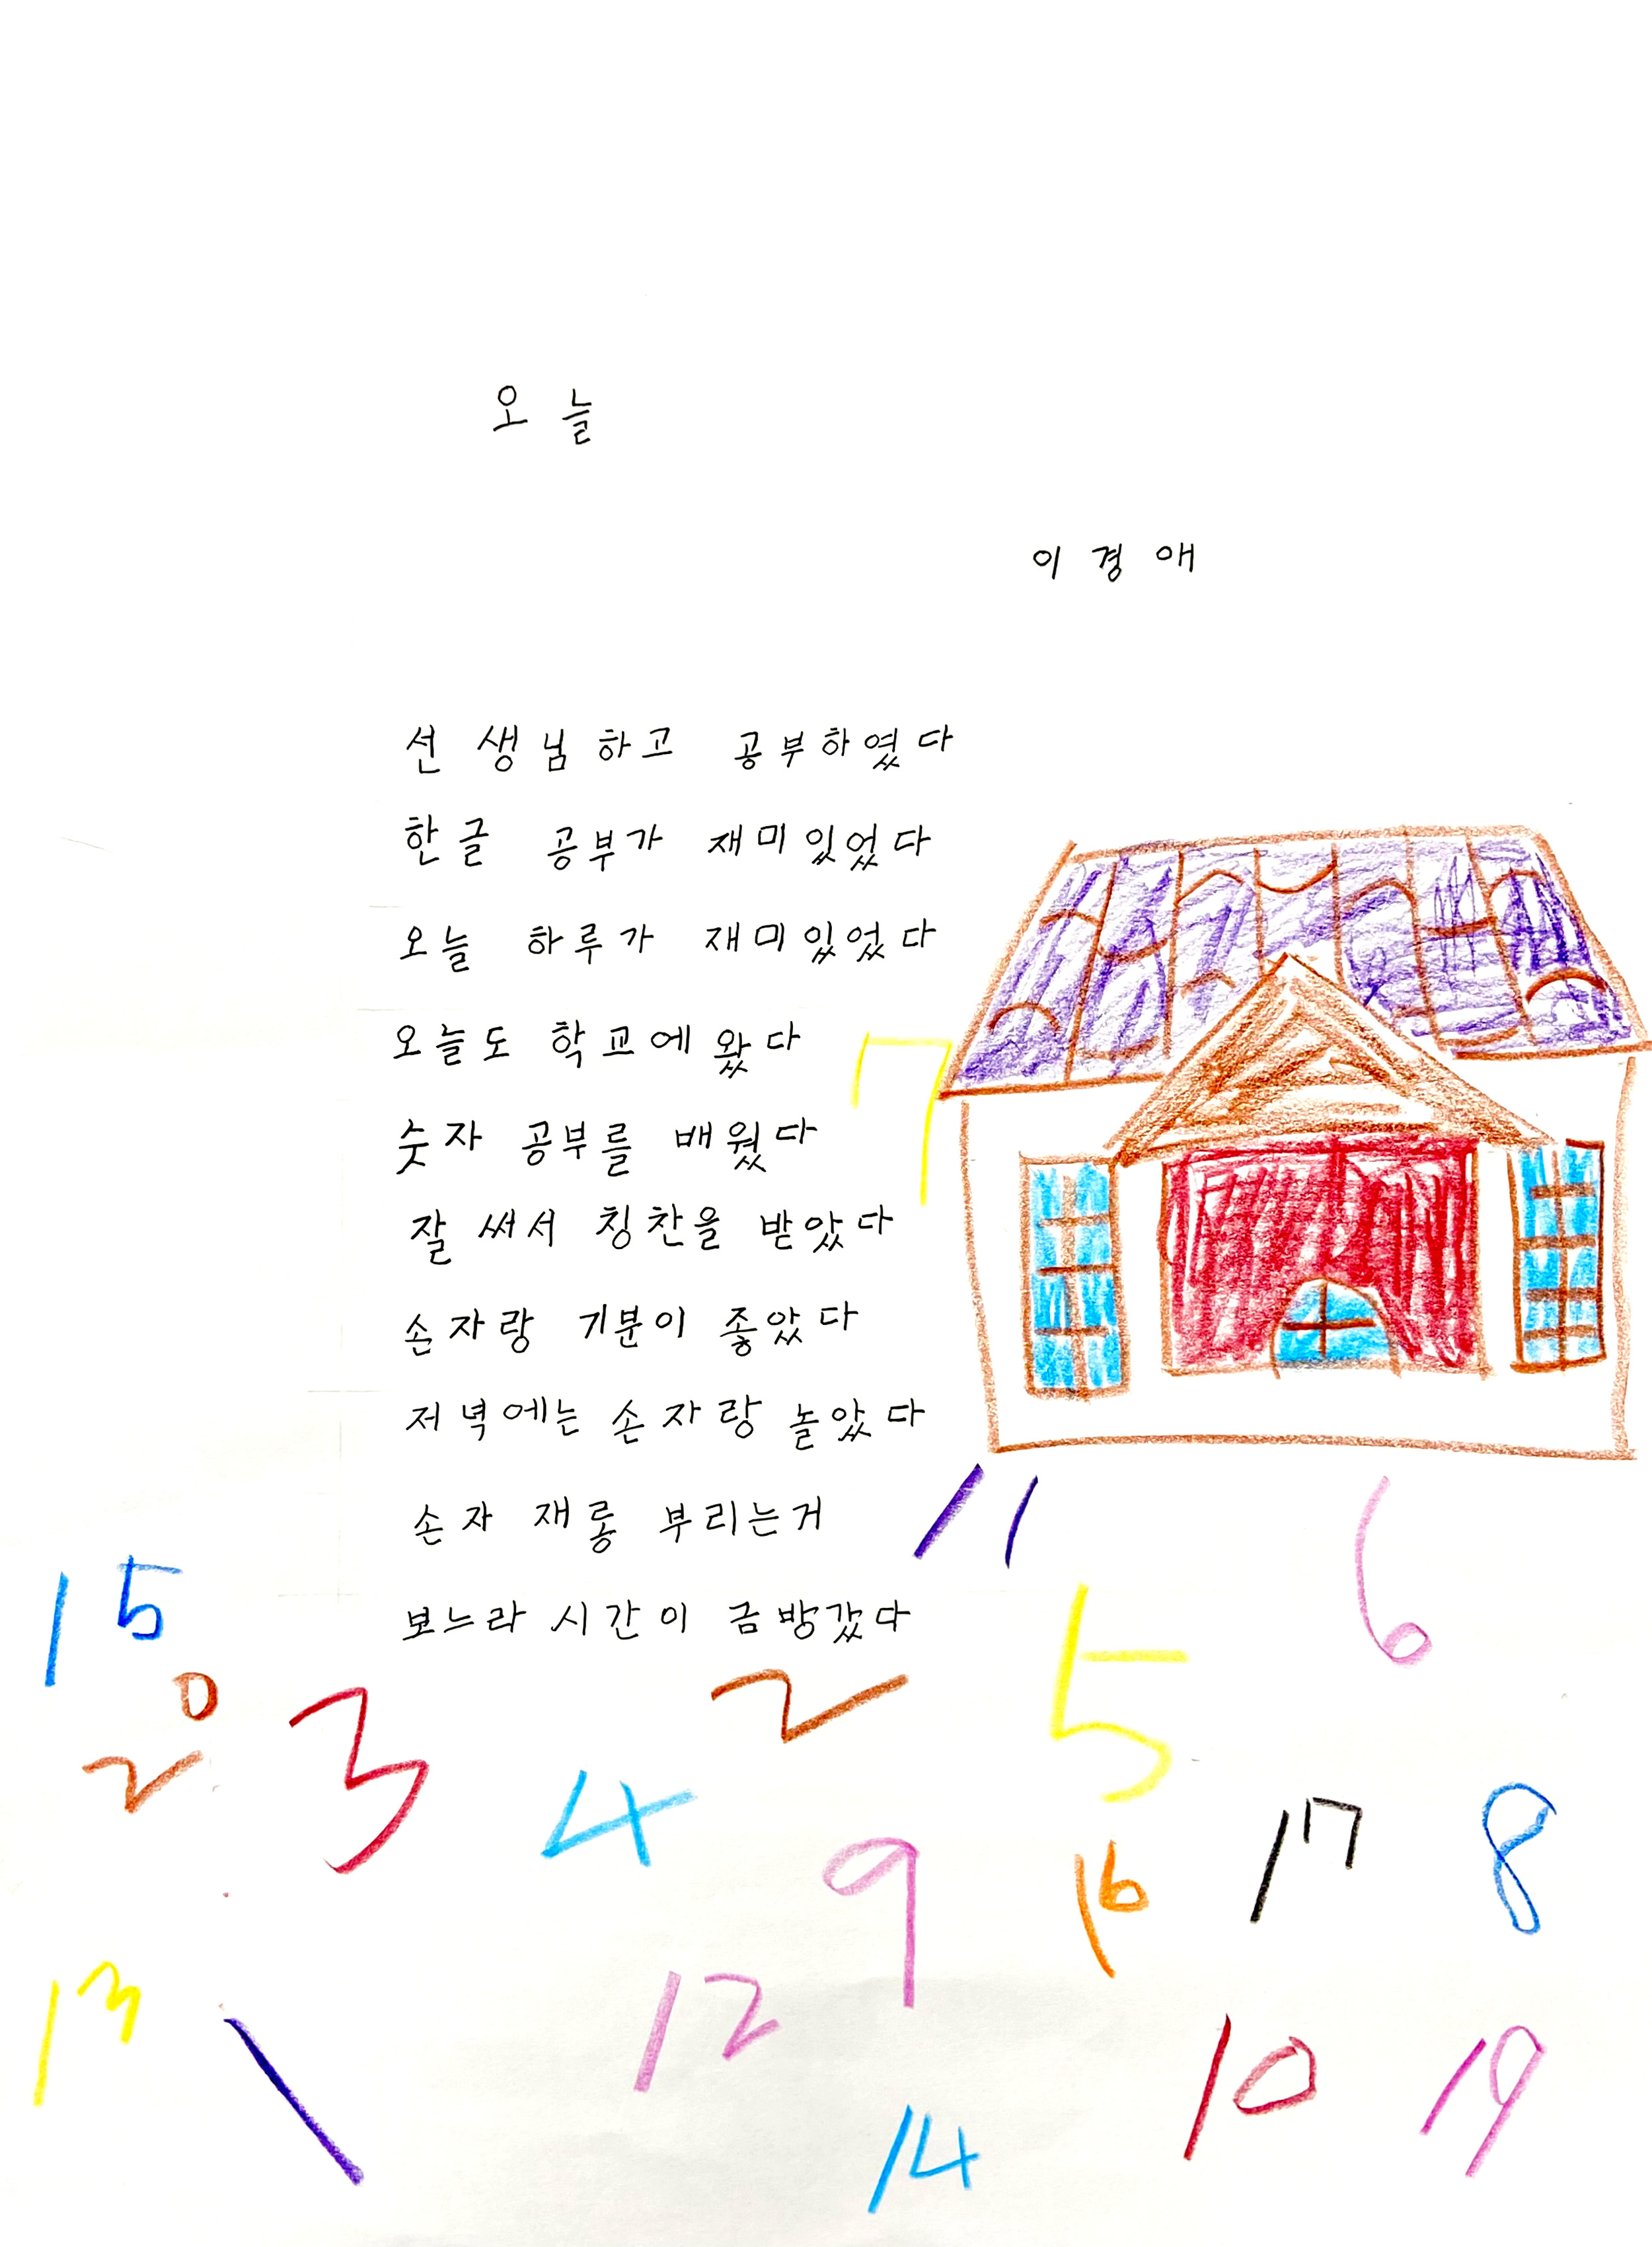 오늘
이경애
선생님하고 공부하였다
한글 공부가 재미있었다
오늘 하루가 재미있었다
오늘도 학교에 왔다
숫자 공부를 배웠다
잘 써서 칭찬을 받았다
손자랑 기분이 좋았다
저녁에는 손자랑 놀았다
손자 재롱 부리는거
보느라 시간이 금방갔다
7
11
6
15
20
3
2
5
4
9
16
17
8
13
1
12
14
10
19